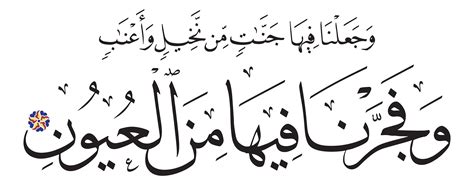 وَجَعَلْنَا فِيهَا جَنَّٰتٍ مِّن نَّخِيلٍ وَأَعْنَٰبٍ
وَفَجَّرْنَا فِيهَا مِنَ الْعُيُونِ